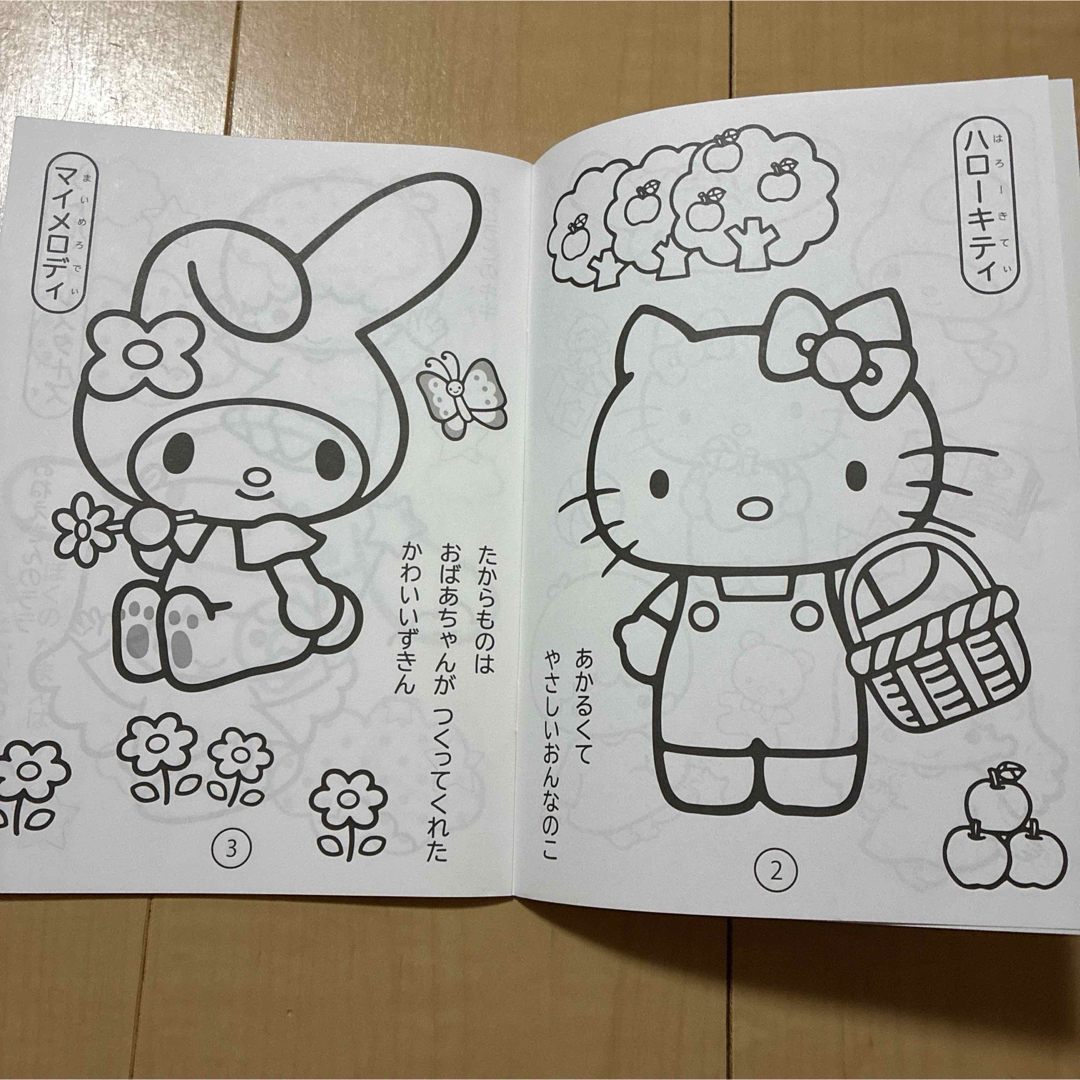 ハローキティ
はろーきてい
あかるくて
やさしいおんなのこ
2
マイメロディ
まいめろでい
たからものは
おばあちゃんが つくってくれた
かわいいずきん
3